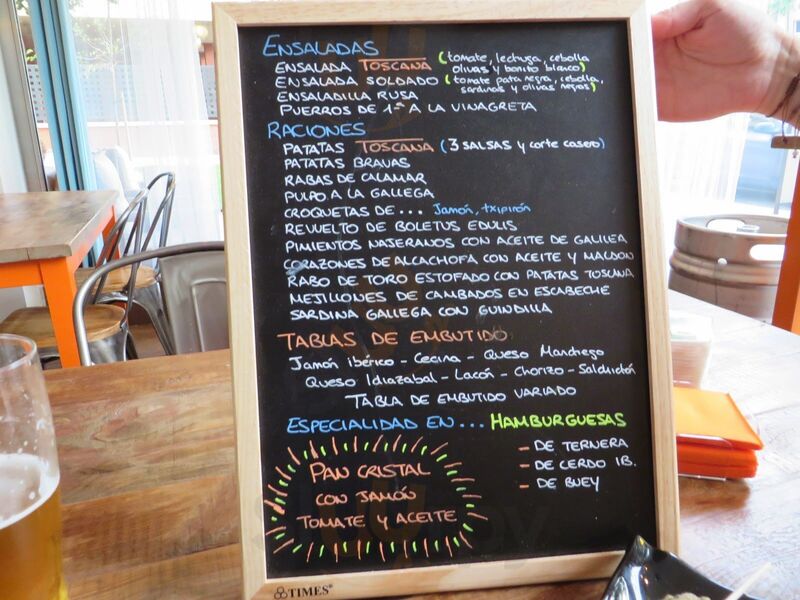 ENSALADAS
ENSALADA TOSCANA (tomate, lechuga, cebolla
olivas y bonito blanco)
ENSALADA SOLDADO (tomate pata negra, cebolla,
sardinas y olivas negras)
ENSALADILLA RUSA
PUERROS DE 1ª A LA VINAGRETA
RACIONES
PATATAS TOSCANA (3 SALSAS y corte casero)
PATATAS BRAVAS
RABAS DE CALAMAR
PULPO A LA GALLEGA
CROQUETAS DE... Jamón, txipirón
REVUELTO DE BOLETUS EDULIS
PIMIENTOS NAJERANOS CON ACEITE DE GALILEA
CORAZONES DE ALCACHOFA CON ACEITE Y MALDON
RABO DE TORO ESTOFADO CON PATATAS TOSCANA
MEJILLONES DE CAMBADOS EN ESCABECHE
SARDINA GALLEGA CON GUINDILLA
TABLAS DE EMBUTIDO
Jamón ibérico - Cecina - Queso Manchego
Queso Idiazabal - Lacón - Chorizo - Salchichón
TABLA DE EMBUTIDO VARIADO
ESPECIALIDAD EN... HAMBURGUESAS
- DE TERNERA
- DE CERDO IB.
- DE BUEY
PAN CRISTAL
CON JAMÓN
TOMATE Y ACEITE
TIMES®